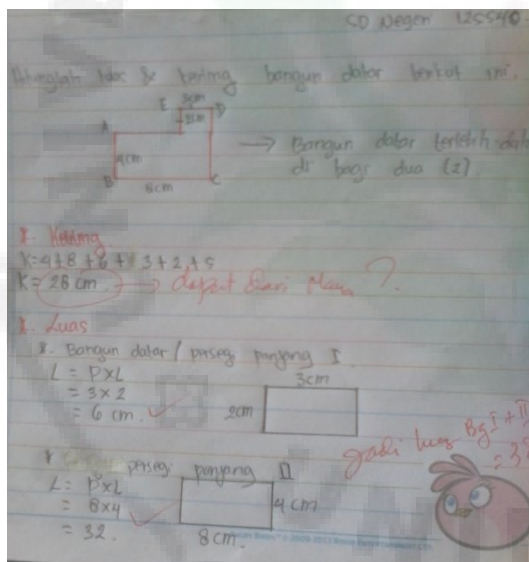 SD Negeri 125540
Hitunglah luas & keliling bangun datar berikut ini.
E 3cm D
2cm
A
4cm
B 8cm C
→ Bangun datar terlebih dah
di bagi dua (2)
* Keliling
K=4+8+6+ 3+2+5
K= 28 cm → dapat dari Mana ?
* Luas
* Bangun datar / perseg panjang I
L = P×L
= 3×2
= 6 cm. ✓
3cm
2cm
Jadi luas Bg I + II
= 3
* perseg panjang II
L = P×L
= 8×4 ✓
= 32.
4 cm
8 cm.